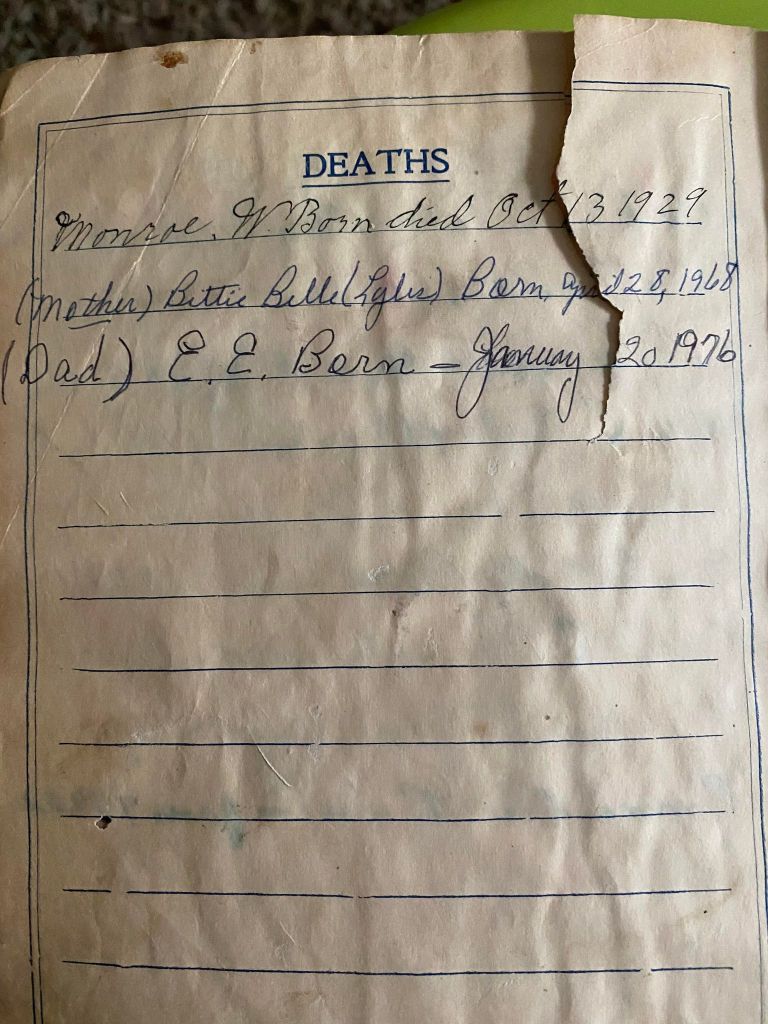 DEATHS
Monroe. W. Born died Oct 13 1929
(Mother) Bittie Belle (Lyles) Born, April 28, 1968
(Dad) E. E. Born - January 20 1976